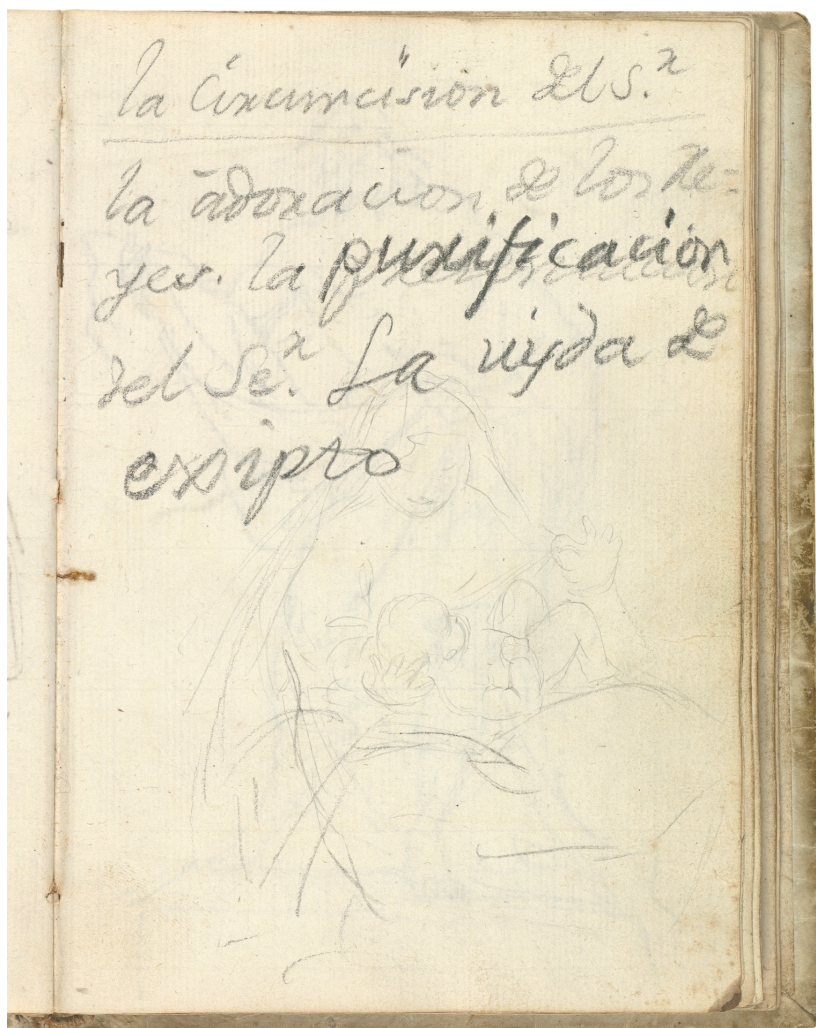 la Circumcision del S.r
la adoracion de los Re=
yes. la purificacion
del Se.r La uyda de
exipto